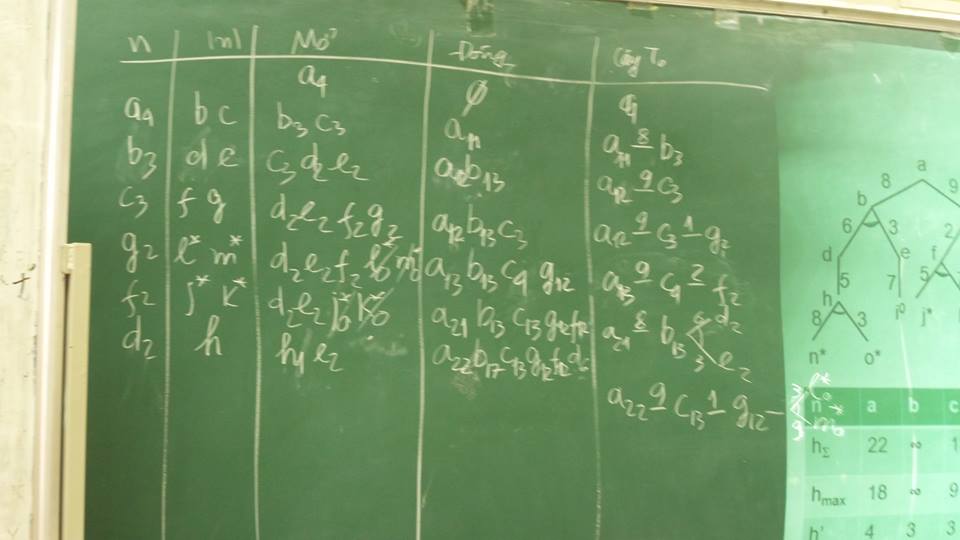 n |n| Mở Đóng Cây T₀
a₄ ∅ a₄
a₄ b c b₃ c₃ a₁₁ a₁₁ 8 b₃
b₃ d e c₃ d₂ e₂ a₁₂ b₁₃ a₁₂ 9 c₃
c₃ f g d₂ e₂ f₂ g₂ a₁₂ b₁₃ c₃ a₁₂ 9 c₃ 1 g₂
g₂ l* m* d₂ e₂ f₂ a₁₃ b₁₃ c₄ g₁₂ a₁₃ 9 c₄ 2 f₂
f₂ j* k* d₂ e₂ j*₀ k*₀ a₂₁ b₁₃ c₁₃ g₁₂ f₁₂ a₂₁ 8 b₁₃ 6 d₂ 3 e₂
d₂ h h₁ e₂ a₂₂ b₁₇ c₁₃ g₁₂ f₁₂ a₂₂ 9 c₁₃ 1 g₁₂ l*₀ m*₀
a
8 9
b
6 3 2
d e f
5 7 5
h i⁰ j*
8 3
n* o*
n a b c
hΣ 22 ∞ 1
hmax 18 ∞ 9
h' 4 3 3